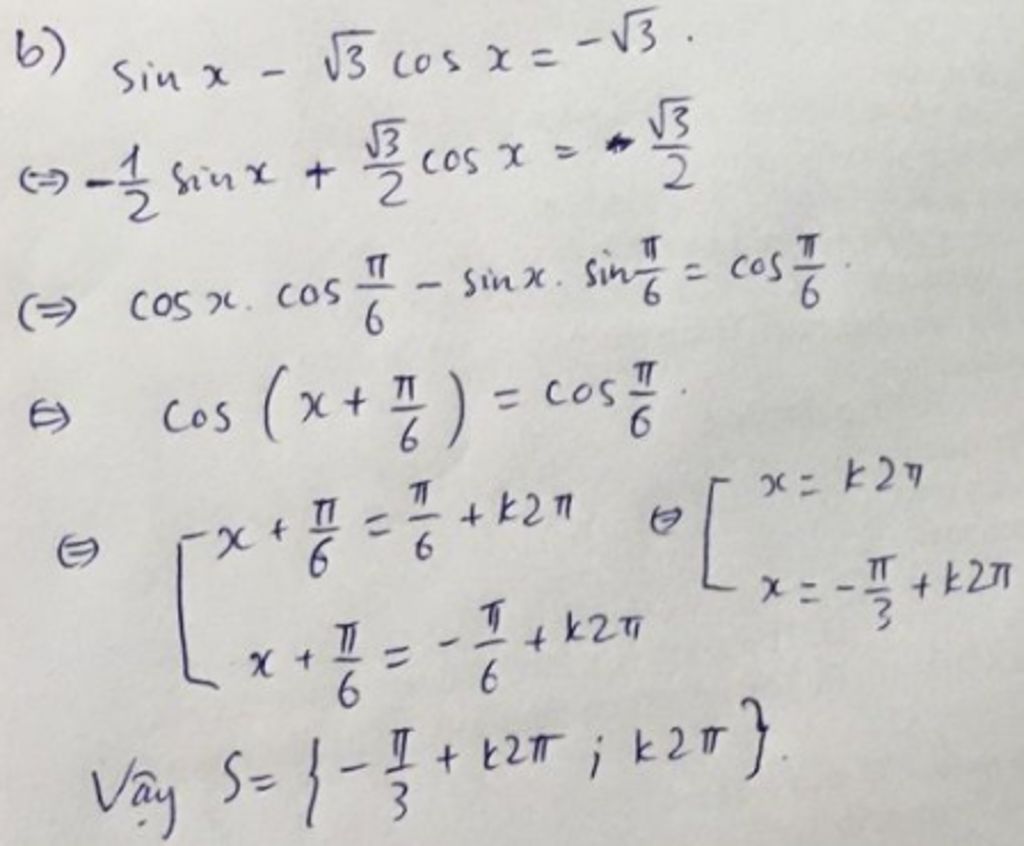 b) sin x - √3 cos x = -√3.
⇔ -1/2 sin x + √3/2 cos x = √3/2
⇔ cos x. cos π/6 - sin x. sin π/6 = cos π/6.
⇔ cos (x + π/6) = cos π/6.
⇔ [ x + π/6 = π/6 + k2π ⇔ [ x = k2π
x + π/6 = -π/6 + k2π x = -π/3 + k2π
Vậy S = { -π/3 + k2π ; k2π }.